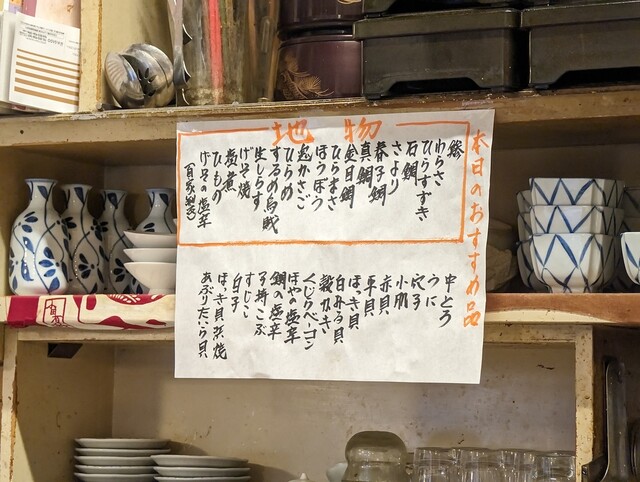 本日のおすすめ品
地物
鯵
わらさ
ひらすずき
石鯛
さより
春子鯛
真鯛
金目鯛
ひらまさ
ほうぼう
鬼かさご
ひらめ
するめ烏賊
生しらす
げそ焼
塩煮
ひもの
げその塩辛
(自家製)
中とろ
うに
穴子
小肌
赤貝
平貝
ほっき貝
白みる貝
殻かき
くじらベーコン
ほやの塩辛
鯛の塩辛
子持こぶ
すじこ
白子
ほっき貝浜焼
あぶりたいら貝